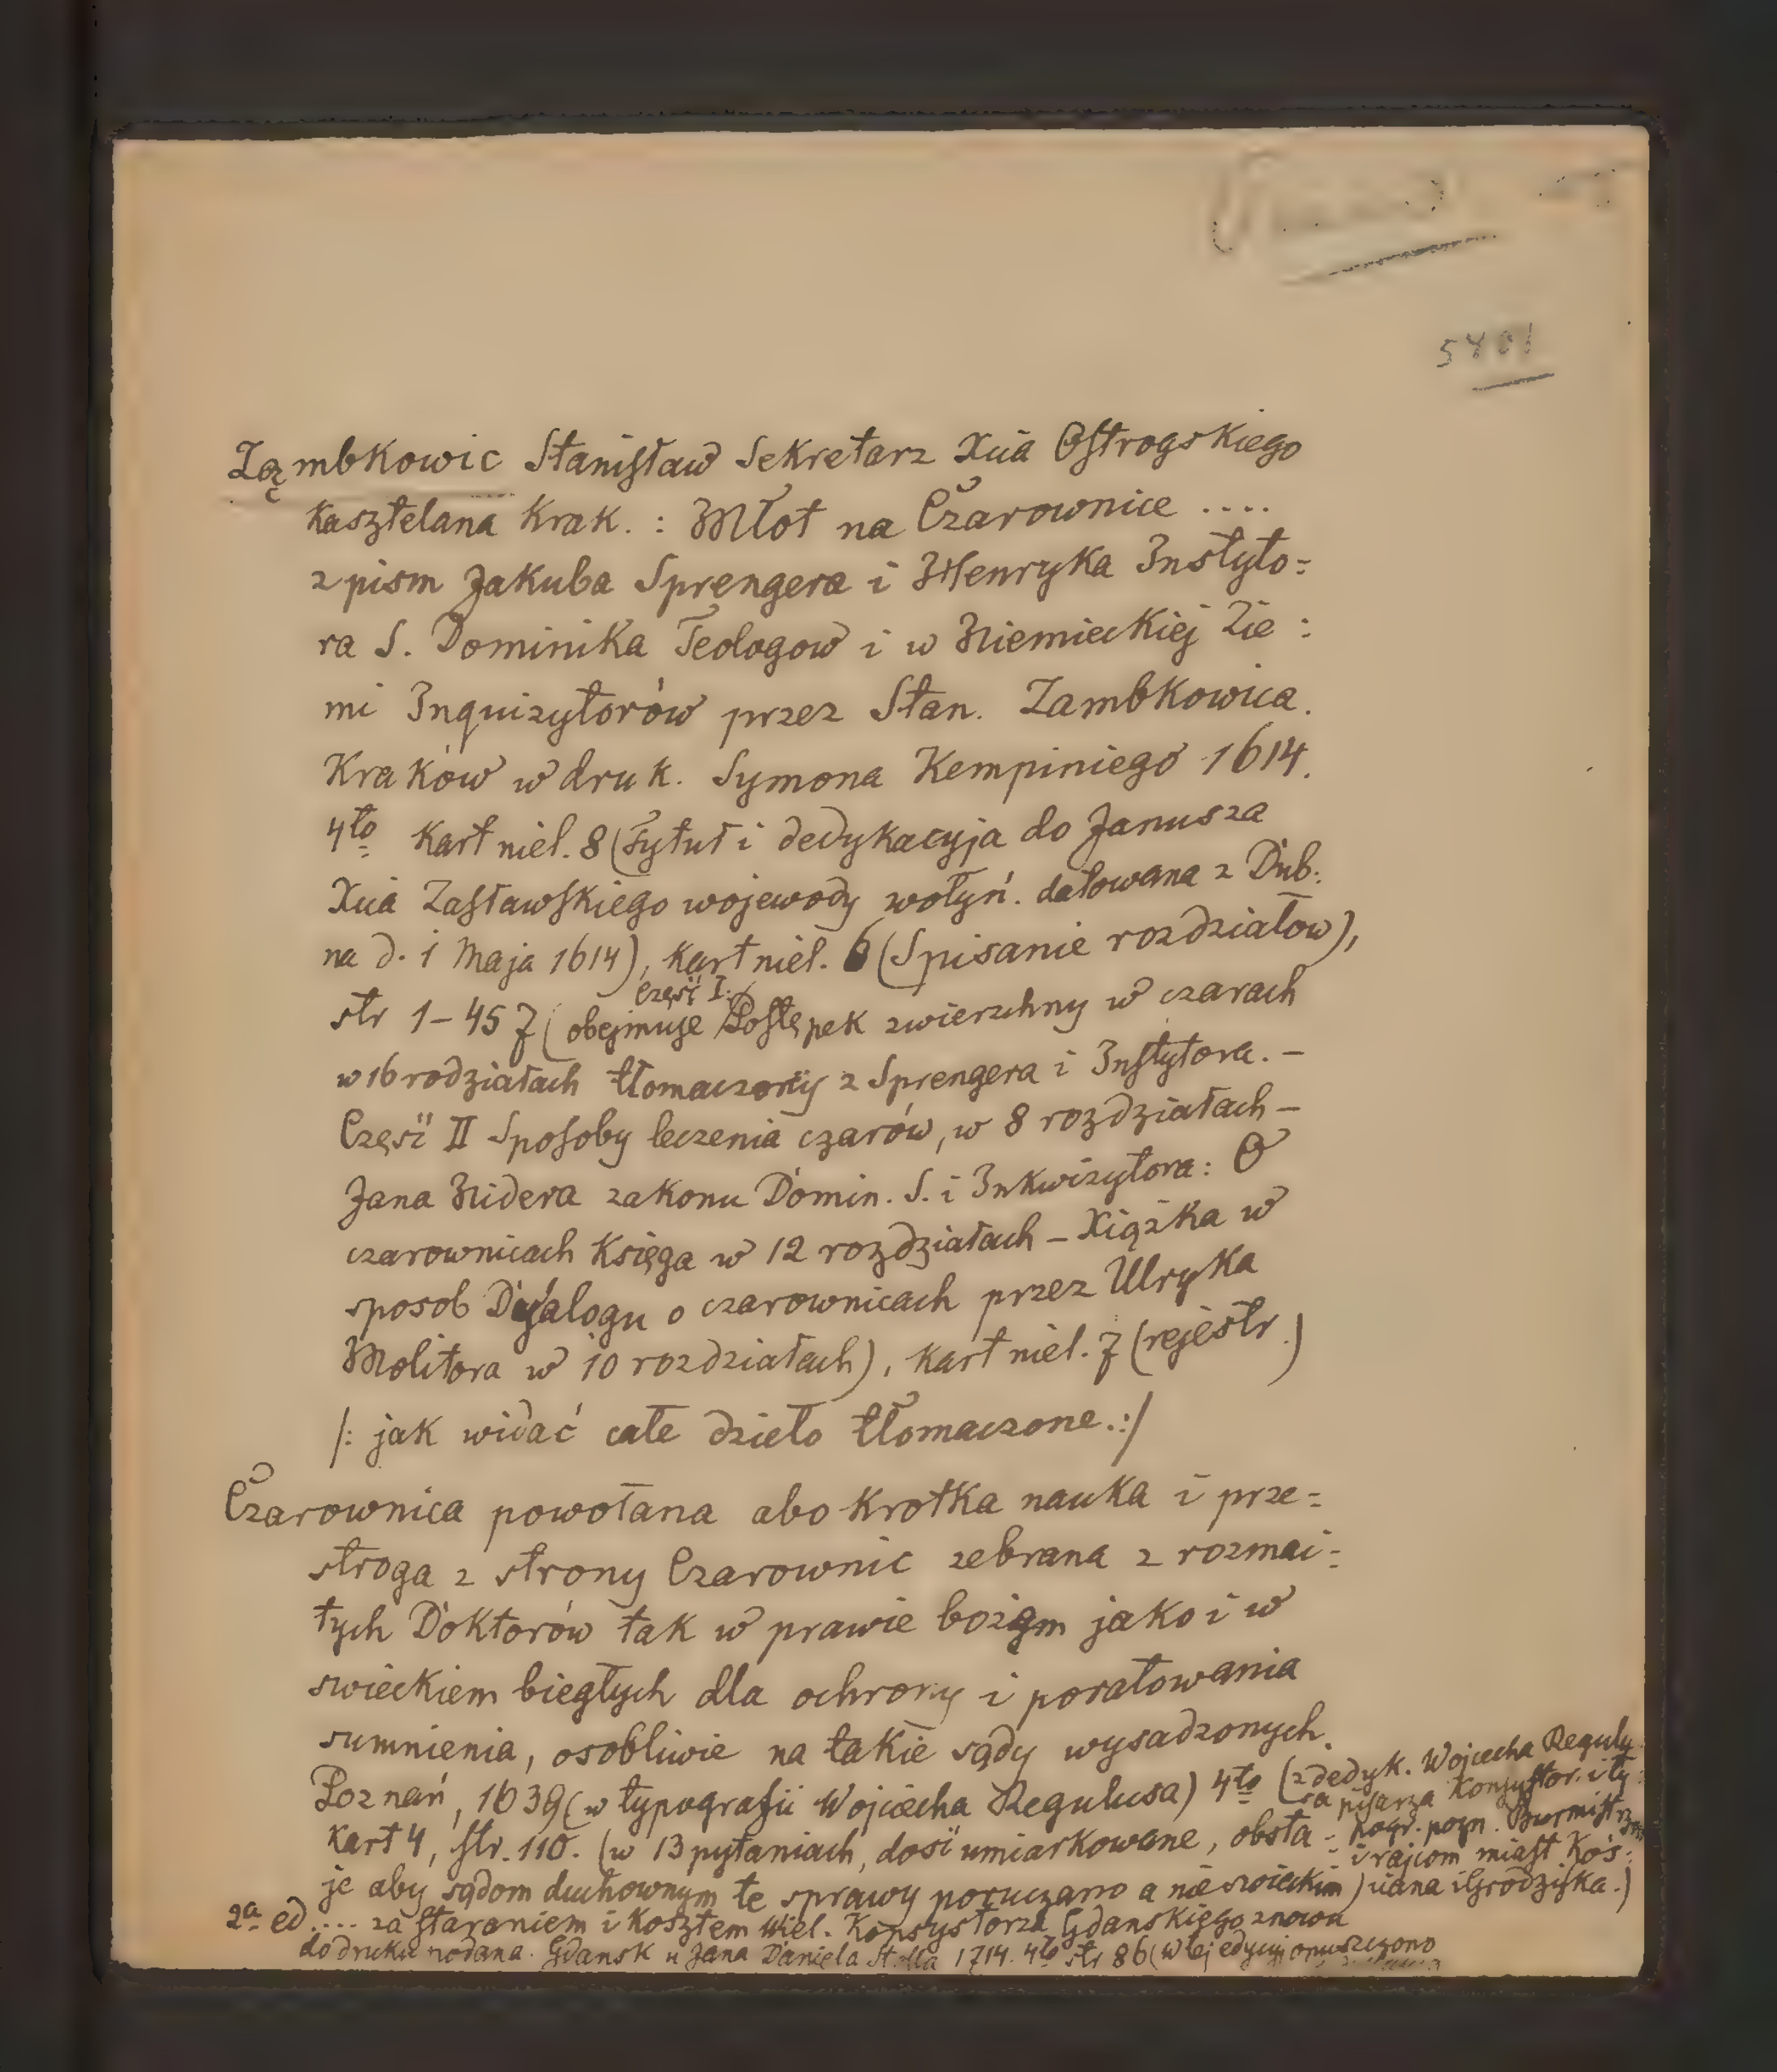 5401
Ząmbkowic Stanisław Sekretarz Xcia Ostrogskiego
kasztelana Krak. : Młot na Czarownice ....
z pism Jakuba Sprengera i Henryka Instyto=
ra S. Dominika Teologow i w Niemieckiej Zie:
mi Inquizytorów przez Stan. Zambkowica.
Kraków w druk. Symona Kempiniego 1614.
4to Kart niel. 8 (Tytuł i dedykacyja do Janusza
Xcia Zasławskiego wojewody wołyń. datowana z Dub:
na d. 1 Maja 1614), Kart niel. 6 (Spisanie rozdziałow),
str 1-457 (obejmuje Część I: Postępek zwierzchny w czarach
w 16 rodziałach tłomaczony z Sprengera i Instytora. –
Część II Sposoby leczenia czarów, w 8 rozdziałach –
Jana Nidera zakonu Domin. S. i Inkwizytora: O
czarownicach Księga w 12 rozdziałach – Xiążka w
sposob Dyalogu o czarownicach przez Ulryka
Molitora w 10 rozdziałach), Kart niel. 7 (rejestr.)
/: jak widać całe dzieło tłomaczone.:/
Czarownica powołana abo krotka nauka i prze=
stroga z strony Czarownic zebrana z rozmai=
tych Doktorów tak w prawie bożym jako i w
swieckiem biegłych dla ochrony i poratowania
sumnienia, osobliwie na takie sądy wysadzonych.
Poznań, 1639 (w typografii Wojciecha Regulusa) 4to (z dedyk. Wojciecha Reguly
sa pisarza Konsystor. i ty
Kart 4, str. 110. (w 13 pytaniach, dość umiarkowane, obsta= pogr. pozn. Burmistrzom
i rajcom miast Koś:
je aby sądom duchownym te sprawy poruczano a nie swieckim) ciana i Grodziska.)
2a ed .... za staraniem i kosztem Wiel. Konsystorza Gdanskiego znowu
do druku podana. Gdansk u Jana Daniela Stolla 1714. 4to str 86 (w tej edycyi opuszczono